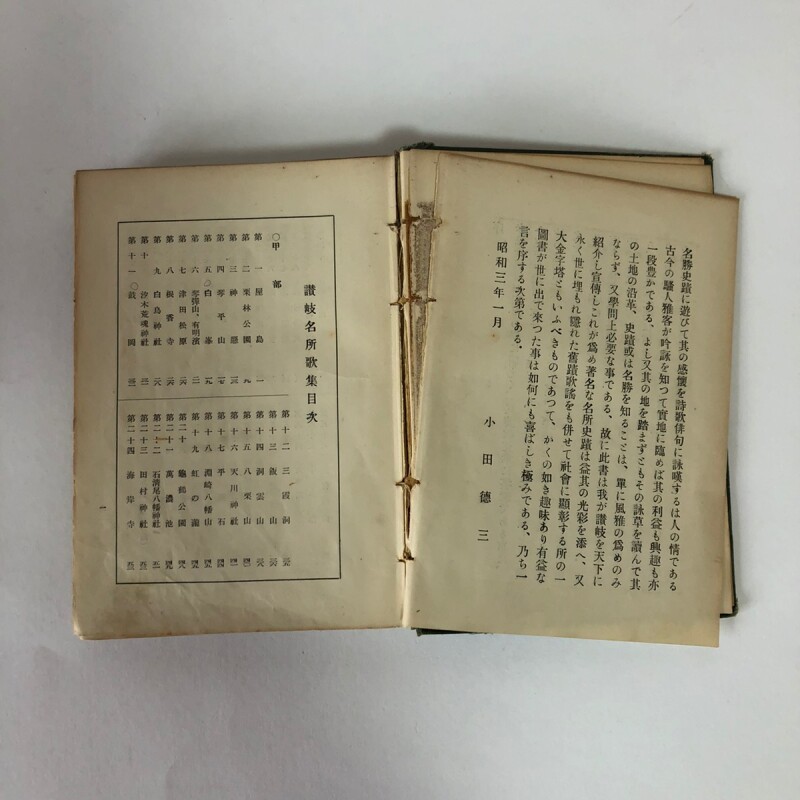 名勝史蹟に遊びて其の感懷を詩歌俳句に詠嘆するは人の情である
古今の騷人雅客が吟詠を知つて實地に臨めば其の利益も興趣も亦
一段豊かである、よし又其の地を踏まずともその詠草を讀んで其
の土地の沿革、史蹟或は名勝を知ることは、單に風雅の爲めのみ
ならず、又學問上必要な事である、故に此書は我が讃岐を天下に
紹介し宣傳しこれが爲め著名な名所史蹟は益其の光彩を添へ、又
永く世に埋もれ隱れた舊蹟歌謠をも併せて社會に顯彰する所の一
大金字塔ともいふべきものであつて、かくの如き趣味あり有益な
圖書が世に出で來つた事は如何にも喜ばしき極みである、乃ち一
言を序する次第である。
昭和三年一月
小田德三
讃岐名所歌集目次
〇甲部
第一 屋島 一
第二 栗林公園 九
第三 神懸
第四 琴平山
第五 白峯
第六 琴彈山、有明濱
第七 津田松原
第八 根香寺
第九 白鳥神社
第十 汐木荒魂神社
第十一
第十二 三霞洞
第十三
第十四 洞雲山
第十五 八栗山
第十六 天川神社
第十七 平石
第十八 洲崎八幡
第十九 虹の瀧
第二十 龜鶴公園
第二十一 萬濃池
第二十二 石淸尾八幡神社
第二十三 田村神社
第二十四 海岸寺